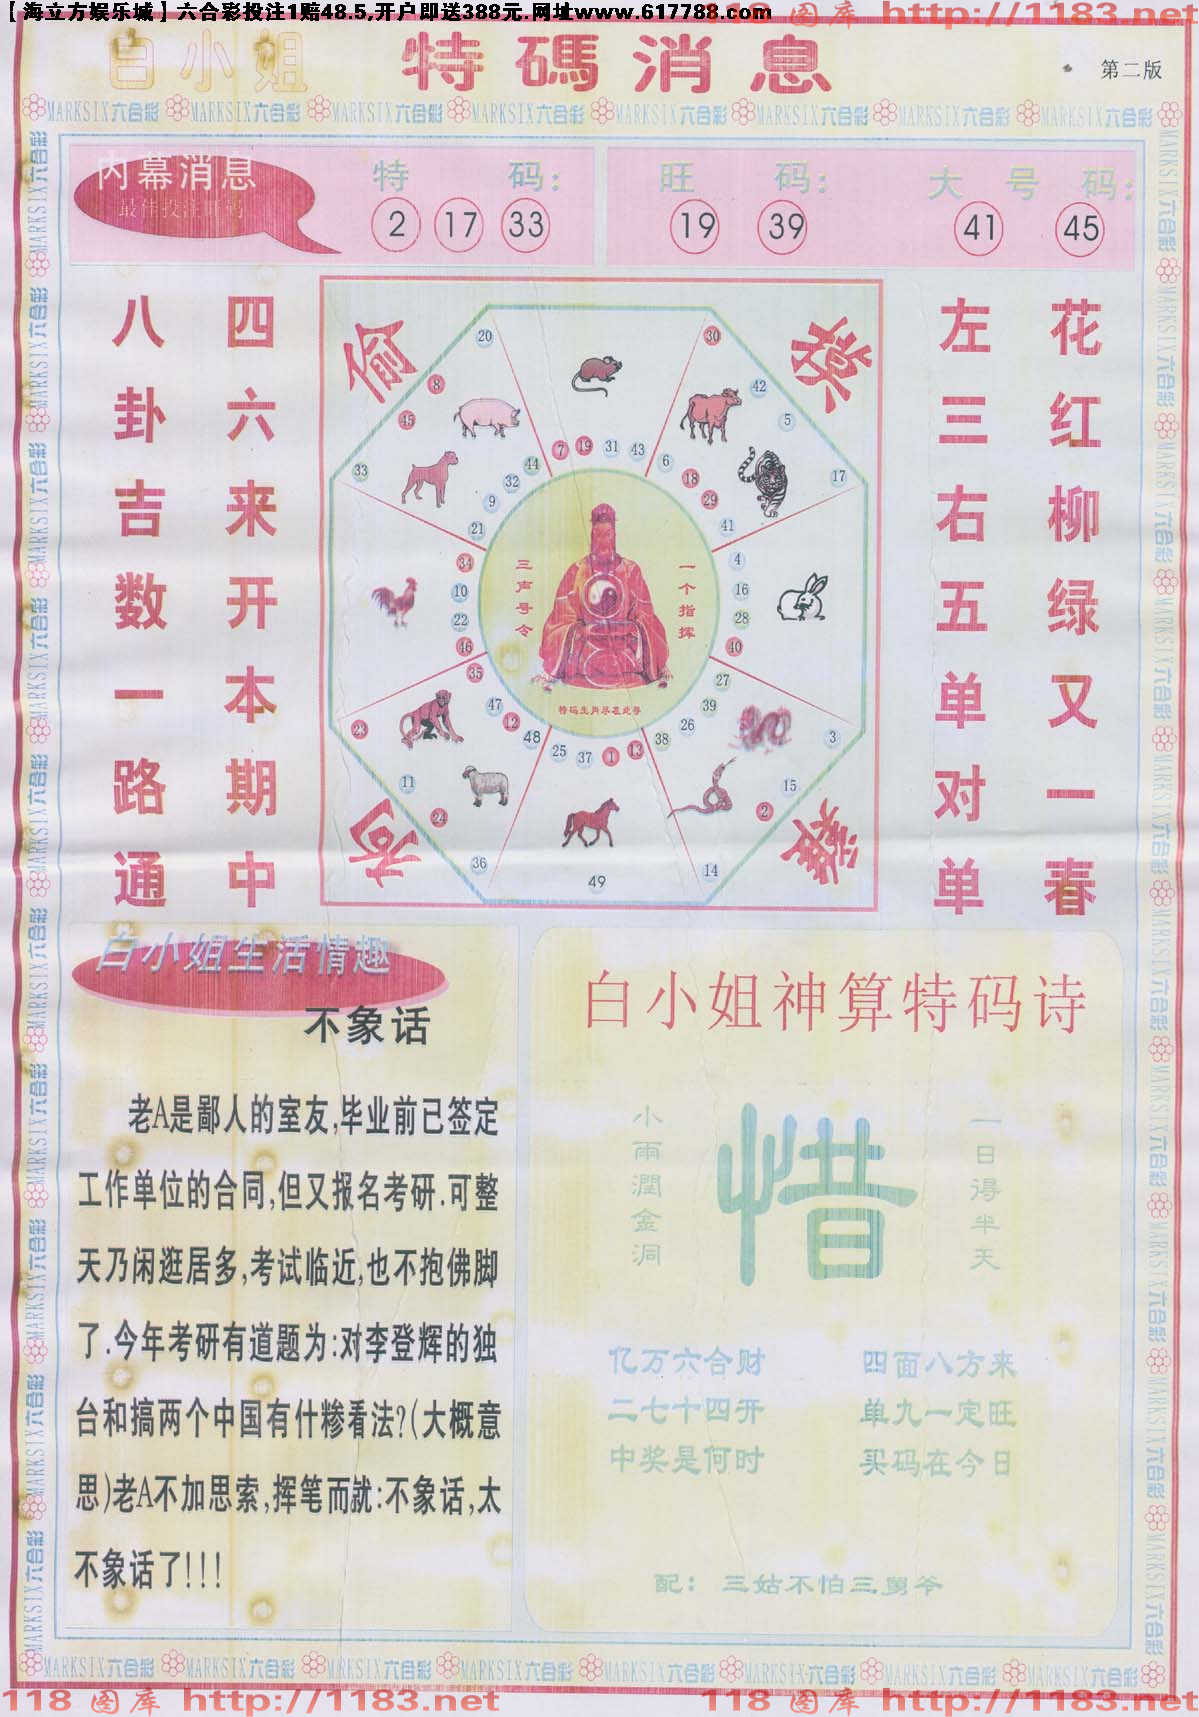 【海立方娱乐城】六合彩投注1赔48.5,开户即送388元.网址www.617788.com
118 图库 http://1183.net
白小姐 特碼消息
第二版
MARKSIX六合彩 MARKSIX六合彩 MARKSIX六合彩 MARKSIX六合彩 MARKSIX六合彩 MARKSIX六合彩 MARKSIX六合彩 MARKSIX六合彩
内幕消息
最佳投注
特 码:
2 17 33
旺 码:
19 39
大 号 码:
41 45
四六来开本期中
八卦吉数一路通
花红柳绿又一春
左三右五单对单
偷
狗
20
8
45
33
30
42
5
17
7 19 31 43
6 18 29 41
44 32 9 21
34 10 22 46
4 16 28 40
35 47 12 48
27 39 26 38
25 37 1 13
23
11
24
36
49
14
2
15
3
三声号令
一个指挥
特码生肖尽在此寻
白小姐生活情趣
不象话
老A是鄙人的室友,毕业前已签定
工作单位的合同,但又报名考研.可整
天乃闲逛居多,考试临近,也不抱佛脚
了.今年考研有道题为:对李登辉的独
台和搞两个中国有什糁看法?(大概意
思)老A不加思索,挥笔而就:不象话,太
不象话了!!!
白小姐神算特码诗
一日得半天
惜
小雨潤金洞
亿万六合财 四面八方来
二七十四开 单九一定旺
中奖是何时 买码在今日
配: 三姑不怕三舅爷
MARKSIX六合彩 MARKSIX六合彩 MARKSIX六合彩 MARKSIX六合彩 MARKSIX六合彩 MARKSIX六合彩 MARKSIX六合彩 MARKSIX六合彩
118 图库 http://1183.net
118 图库 http://1183.net